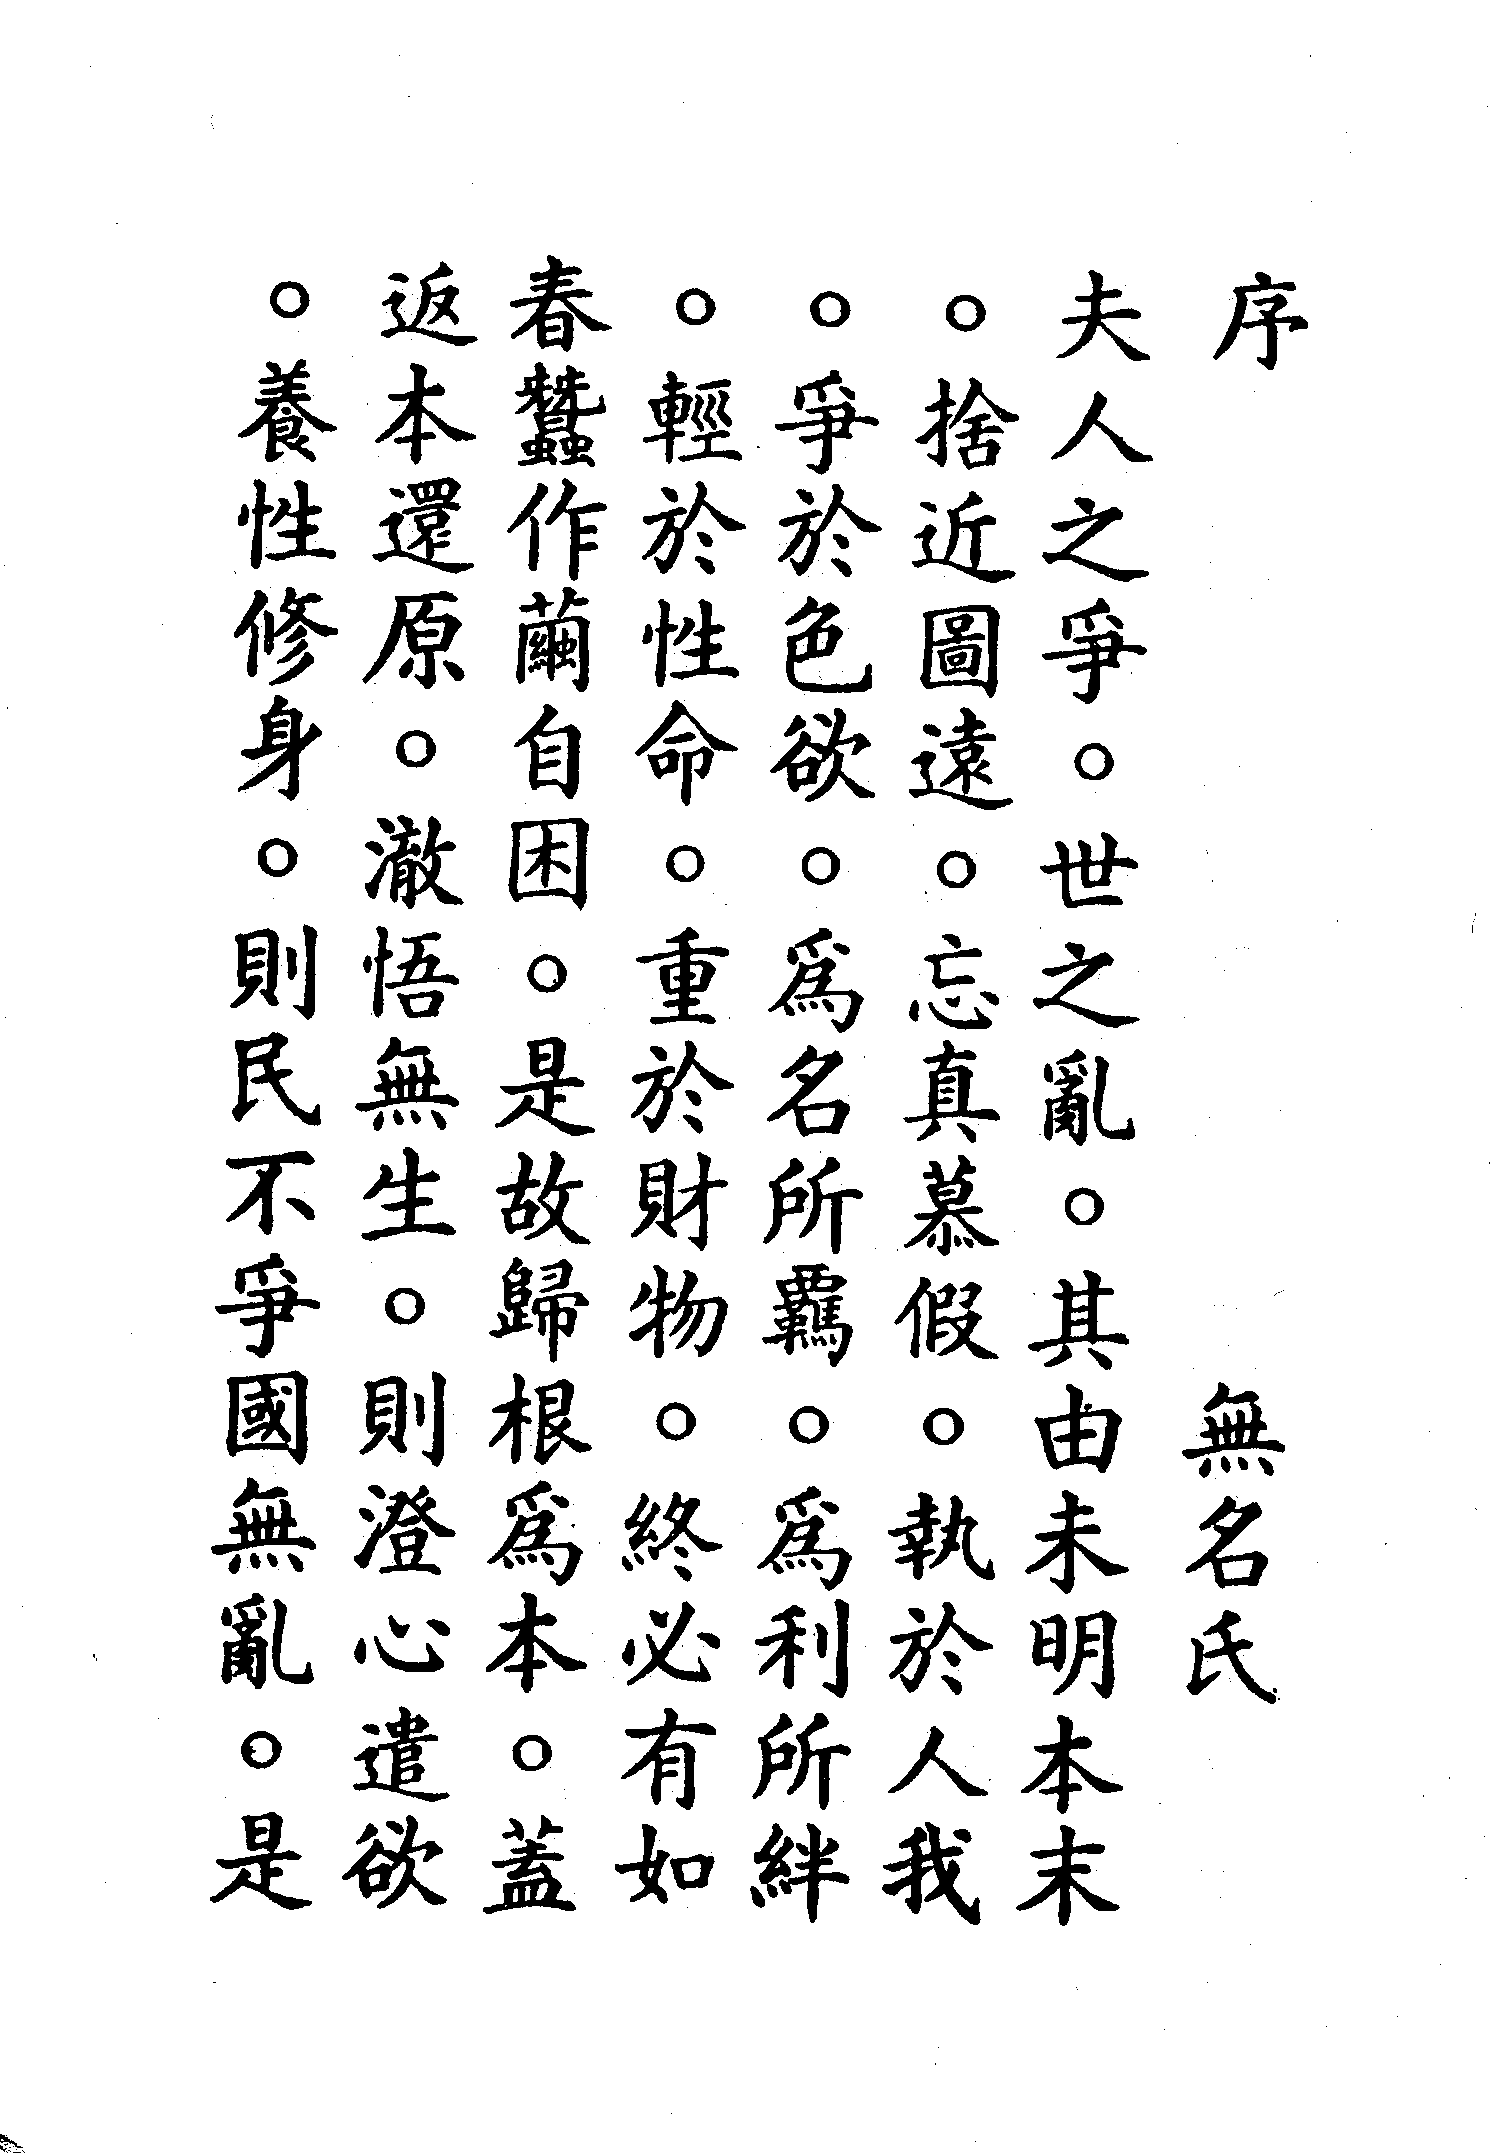 序　無名氏
夫人之爭。世之亂。其由未明本末
。捨近圖遠。忘真慕假。執於人我
。爭於色欲。為名所羈。為利所絆
。輕於性命。重於財物。終必有如
春蠶作繭自困。是故歸根為本。蓋
返本還原。澈悟無生。則澄心遣欲
。養性修身。則民不爭國無亂。是